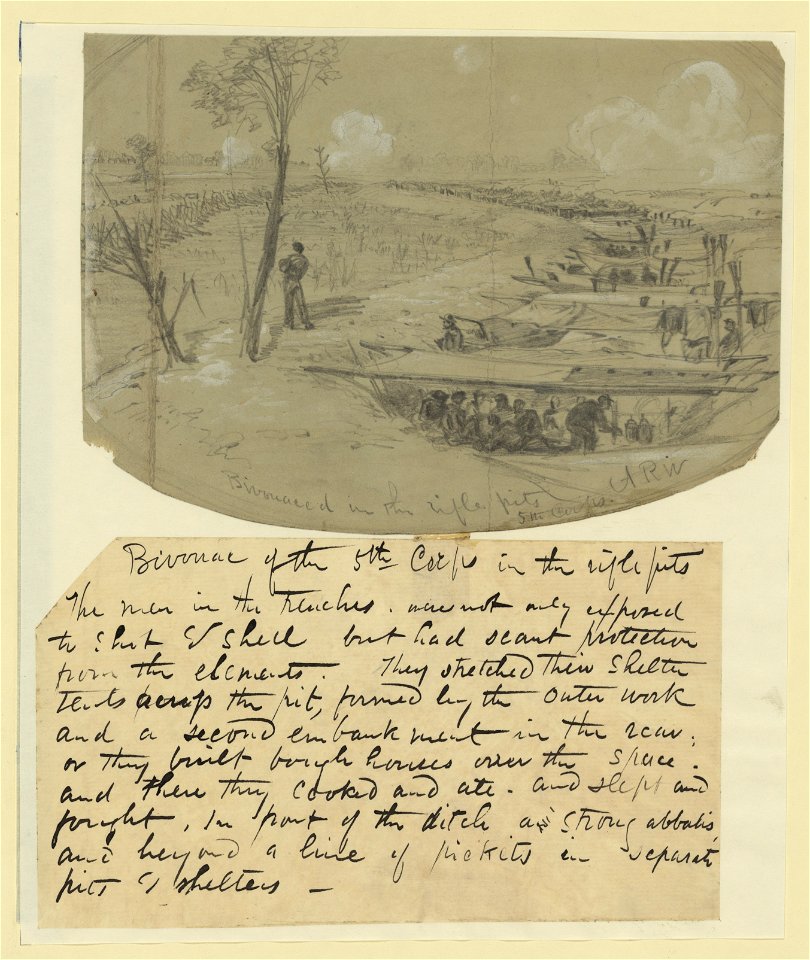 Bivouaced in the rifle pits
5th Corps.
ARW
Bivouac of the 5th Corps in the rifle pits
The men in the trenches. were not only exposed
to shot & shell but had scant protection
from the elements. They stretched their shelter
tents across the pit, formed by the outer work
and a second embankment in the rear;
or they built bough houses over the space.
and there they cooked and ate. and slept and
fought, In front of the ditch a strong abbatis,
and beyond a line of pickits in separate
pits & shelters —